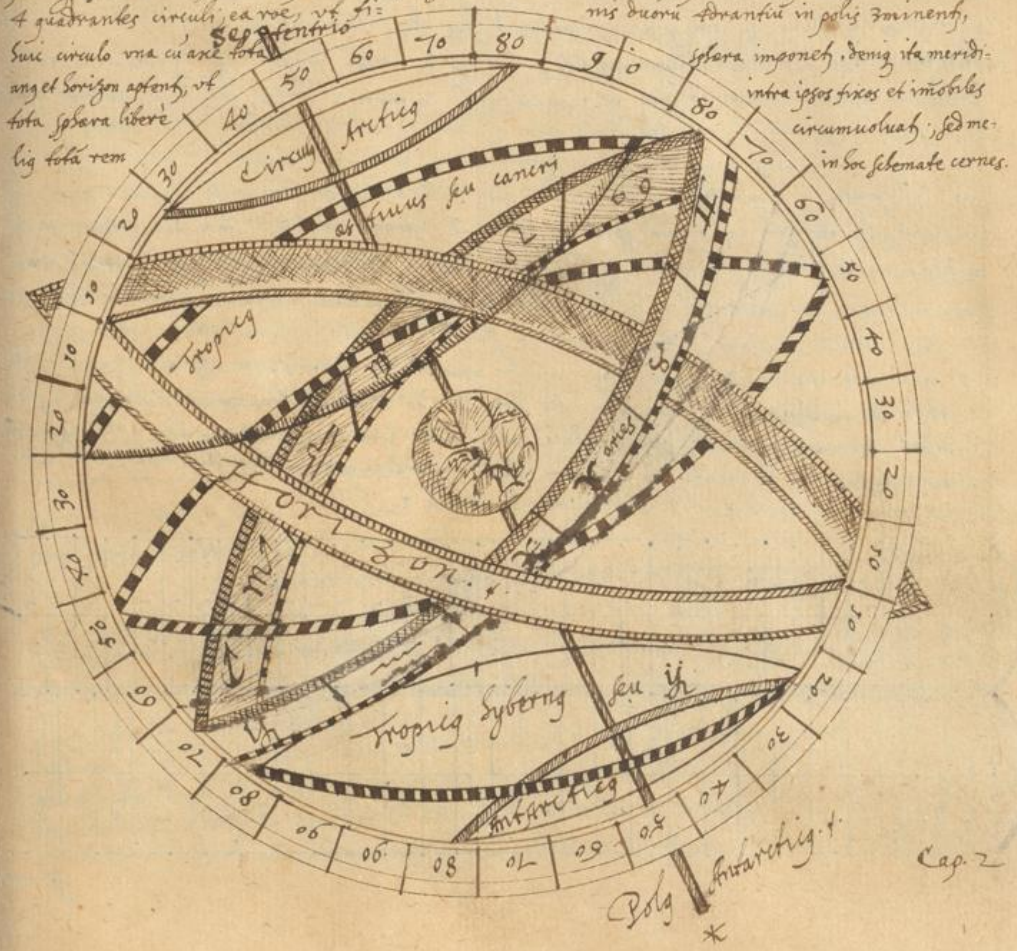 4 quadrantes circuli, ea roe, vt fi=
huic circulo vna cu axe tota
ang et horizon aptent, vt
tota sphæra liberè
lig totá rem
nis duorū 4drantiū in polis 3minent,
sphæra imponet, deniq ita meridi=
intra ipsos fixos et im̃obiles
circumuoluat; sed me=
in hoc schemate cernes.
Septentrio
50 60 70 80 90 80 70 60 50 40 30 20 10
10 20 30 40 50 60 70 80 90 80 70 60 50 40 30 20 10
10 20 30 40 50 60 70 80 90
40 30 20 10
Circulg Arcticg
Tropicg æstiuus seu cancri
♋
♌
♊
♍
♉
♎
aries
♈
Horizon.
♏
♓
♐
♒
♑
Tropicg hyberng seu ♑
Antarcticg
Polg Antarcticg.
Cap. 2